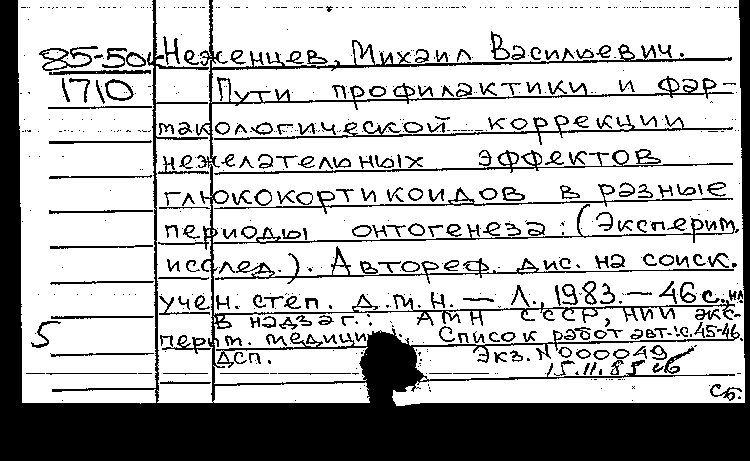 85-504 Неженцев, Михаил Васильевич.
1710 Пути профилактики и фар-
макологической коррекции
нежелательных эффектов
глюкокортикоидов в разные
периоды онтогенеза: (Эксперим.
исслед.). Автореф. дис. на соиск.
учен. степ. д.м.н. — Л., 1983. — 46 с., ил
В надзаг.: АМН СССР, НИИ экс-
5 перим. медицин. Список работ авт.: с. 45-46.
ДСП. Экз. N 000049
15.11.85
сб.